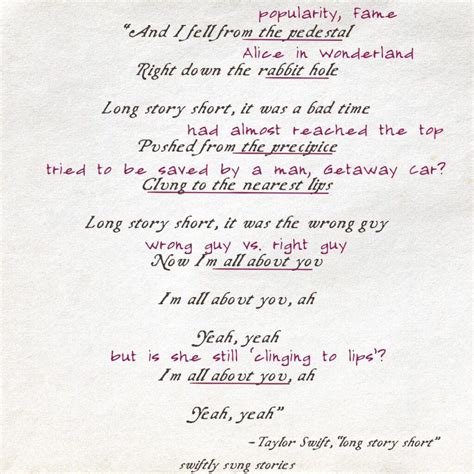 popularity, Fame
“And I fell from the pedestal
Alice in Wonderland
Right down the rabbit hole
Long story short, it was a bad time
had almost reached the top
Pushed from the precipice
tried to be saved by a man, Getaway car?
Clung to the nearest lips
Long story short, it was the wrong guy
wrong guy vs. right guy
Now I'm all about you
I'm all about you, ah
Yeah, yeah
but is she still 'clinging to lips'?
I'm all about you, ah
Yeah, yeah”
-Taylor Swift, "long story short"
swiftly sung stories